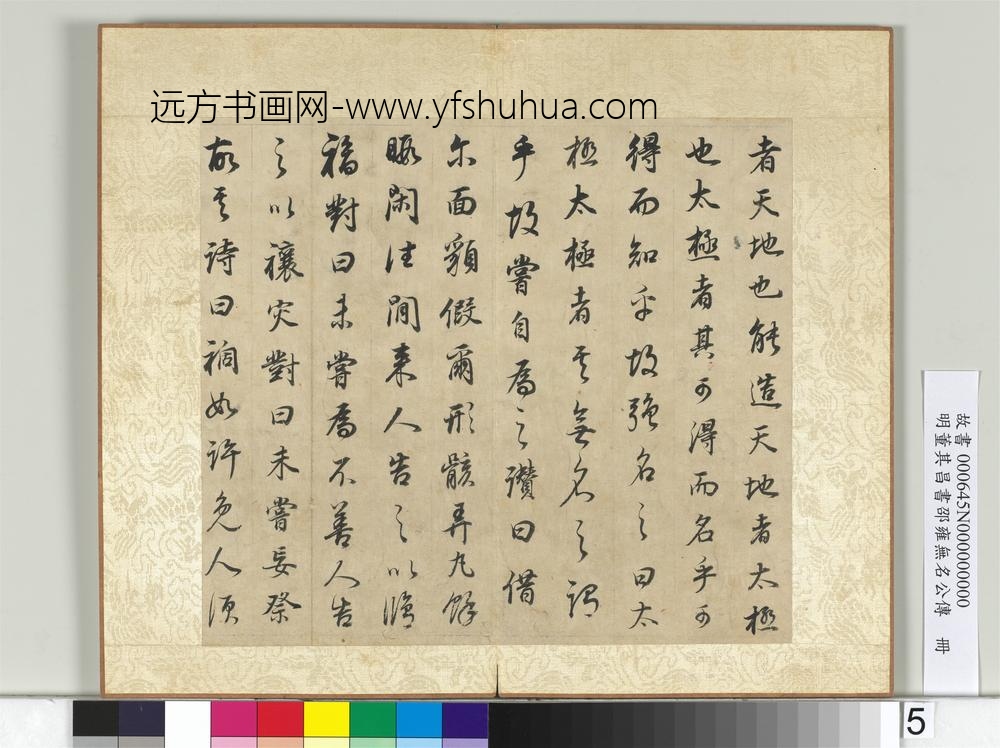 远方书画网-www.yfshuhua.com
者天地也能造天地者太極
也太極者其可得而名乎可
得而知乎故强名之曰太
極太極者其無名之謂
乎故嘗自爲之讚曰借
尔面貌假爾形骸弄丸餘
暇閑往閒來人告之以脩
福對曰未嘗爲不善人告
之以禳灾對曰未嘗妄祭
故其詩曰禍如許免人須
故書000645N000000000
明董其昌書邵雍無名公傳 冊
5